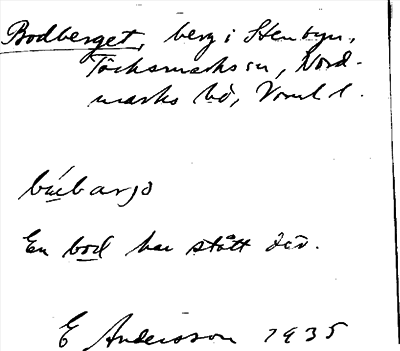 Bodberget, berg i Stenbyn,
Töcksmarks sn, Nord-
marks hd, Vrml l.
En bod har stått där.
E Andersson 1935